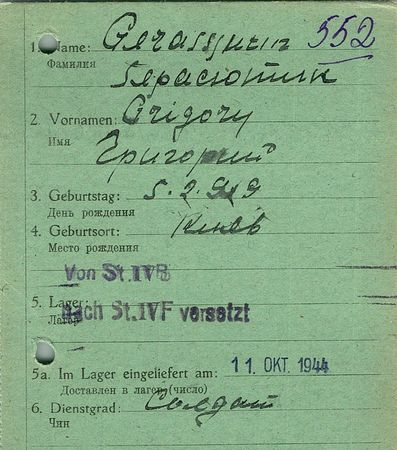 1. Name: 552
Фамилия Герасютин
2. Vornamen: Grigory
Имя Григорий
3. Geburtstag: 5.2.919
День рождения
4. Geburtsort: Киев
Место рождения
Von St.IVB
5. Lager: nach St.IVF versetzt
Лагерь
5a. Im Lager eingeliefert am: 11. OKT. 1944
Доставлен в лагерь (число)
6. Dienstgrad: Солдат
Чин